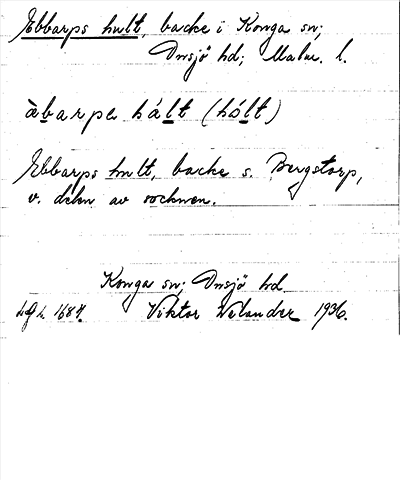 Ebbarps hult, backe i Konga sn;
Onsjö hd; Malm. l.
àbarps hált (hólt)
Ebbarps hult, backe s. Bergstorp,
v. delen av socknen.
Konga sn; Onsjö hd
1687. Viktor Welander 1936.